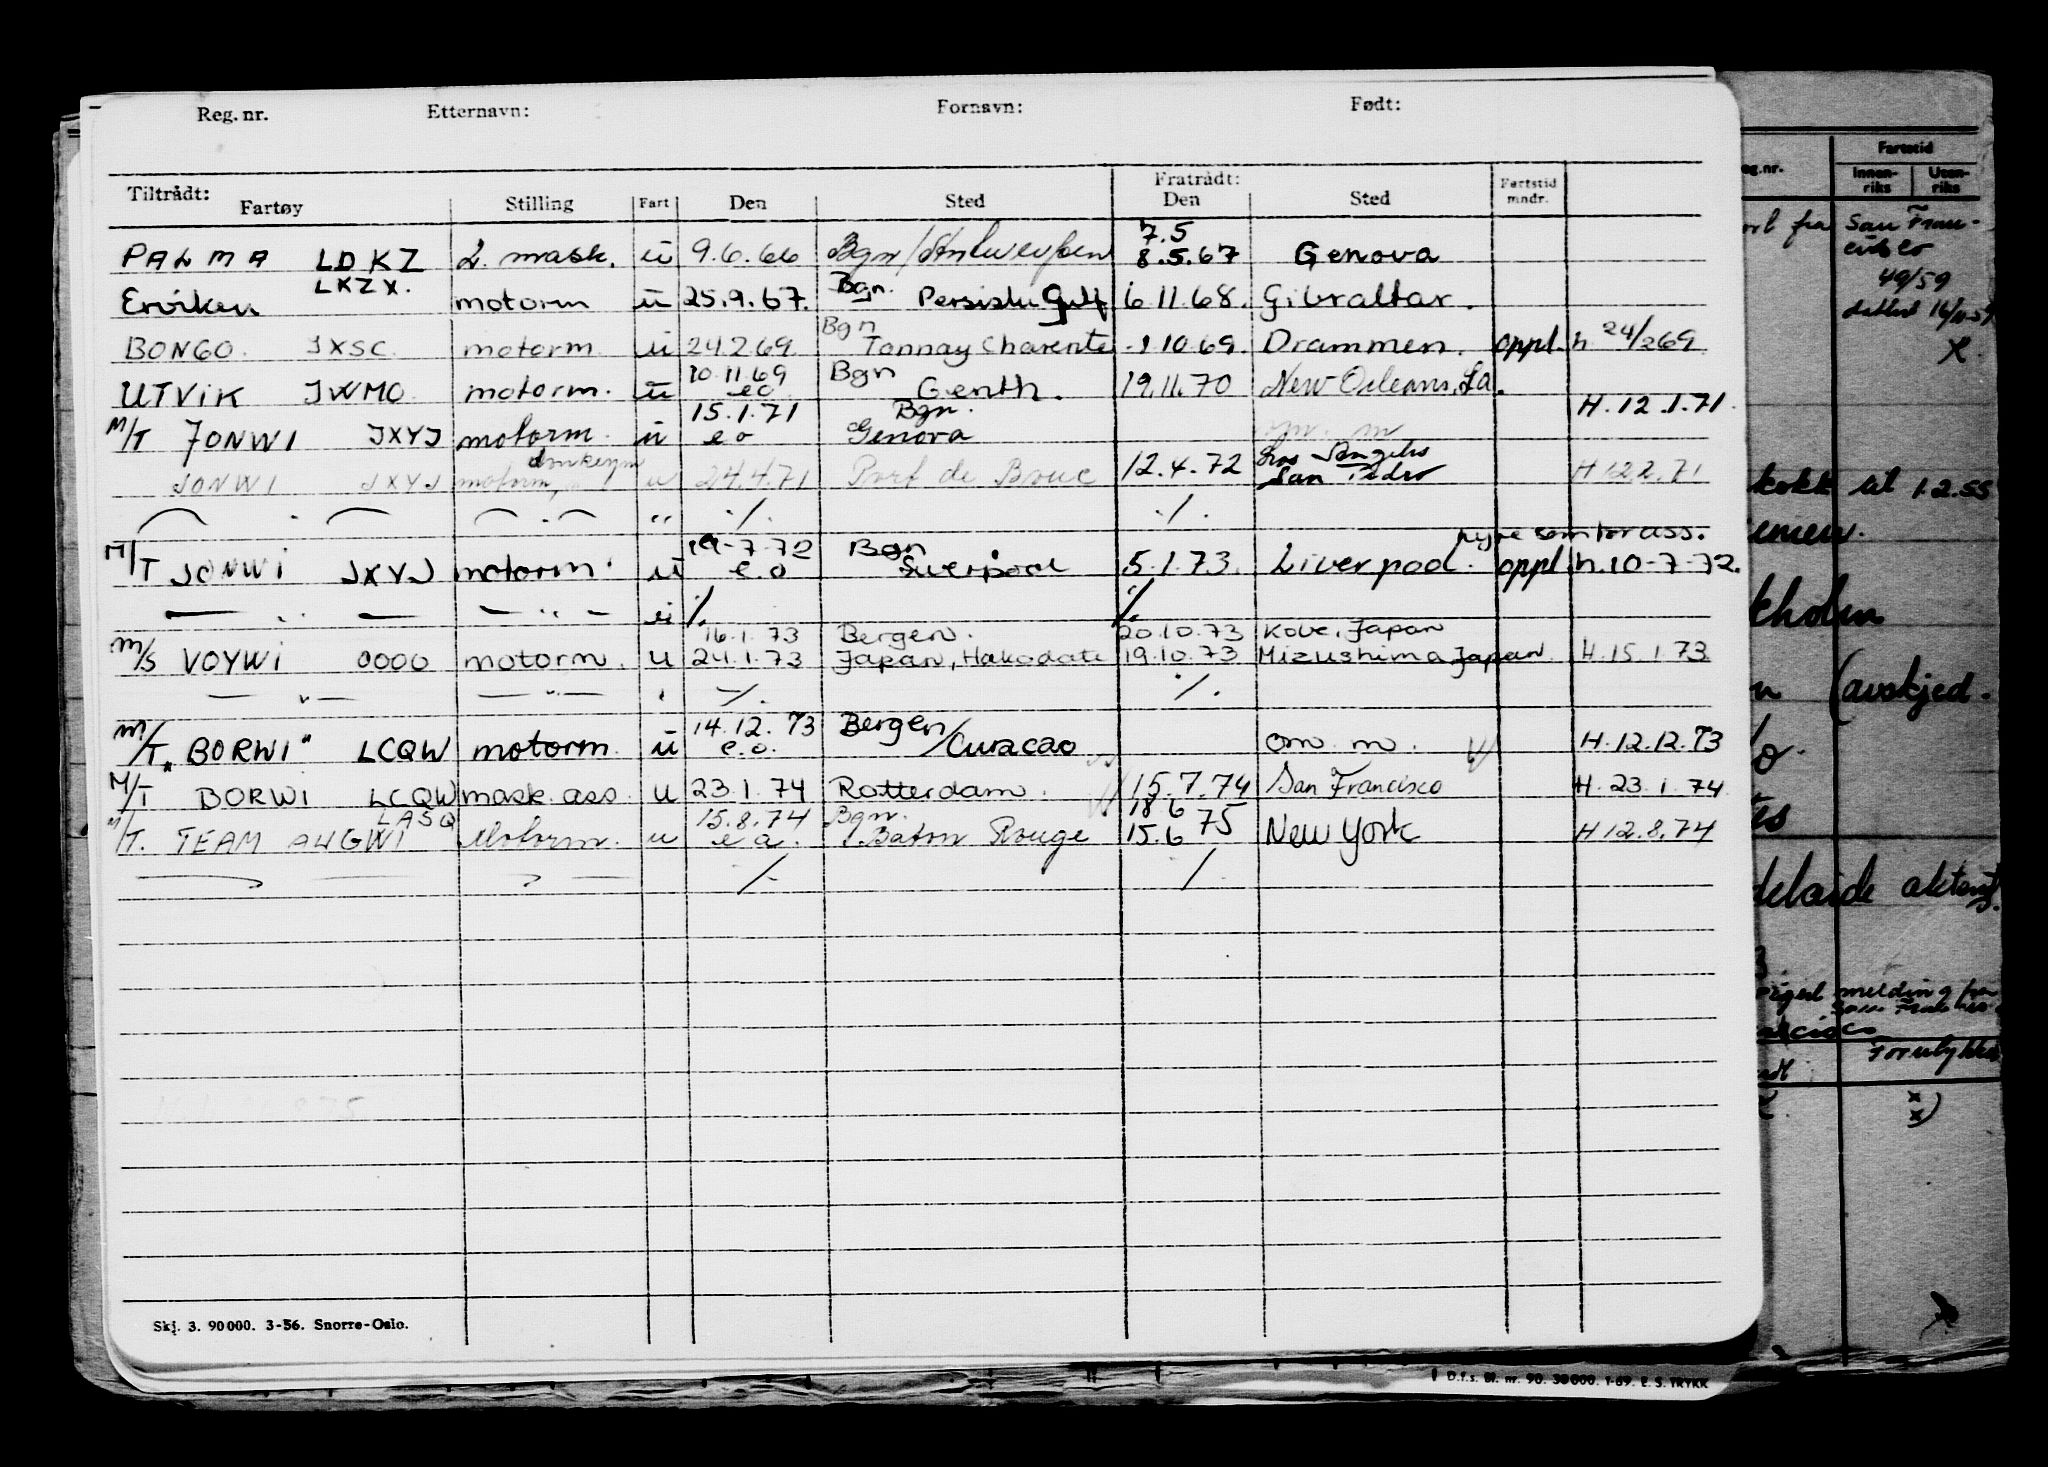 Reg. nr. Etternavn: Fornavn: Født:
Tiltrådt: Fratrådt:
Fartøy Stilling Fart Den Sted Den Sted Fartstid mndr.
7.5
PALMA LDKZ 2. mask. ü 9.6.66 Bgn/Antwerpen 8.5.67 Genova
LKZX. Bgn.
Erviken motorm ü 25.9.67. Persiske Gulf 6.11.68. Gibraltar.
Bgn
BONGO. JXSC. motorm. ü 24.2.69. Tonnay Charente 1.10.69. Drammen. oppl. h 24/2 69.
10.11.69 Bgn
UTVIK JWMO. motorm. ü eo Genth. 19.11.70 New Orleans, La.
15.1.71 Bgn. H. 12.1.71.
M/T JONWI JXYJ motorm. ü eo Genova om. m
donkeym Los Angeles
JONWI JXYJ motorm, u 24.4.71 Port de Bouc 12.4.72 San Pedro H 12.2.71
" ./. ./.
19-7-72 Bgn hyre som tor ass.
M/T JONWI JXYJ motorm. ü e.o Liverpool 5.1.73. Liverpool. oppl. h. 10-7-72.
— " — — — " — ü ./. ./.
16.1.73 Bergen. 20.10.73 Kobe, Japan
M/S VOYWI 0000 motorm. u 24.1.73 Japan, Hakodate 19.10.73 Mizushima Japan. H. 15.1.73
— " — — " — ./. ./.
14.12.73 Bergen
M/T. "BORWI" LCQW motorm. ü e.o. /Curacao om. m. H. 12.12.73
M/T BORWI LCQW mask. ass. u 23.1.74 Rotterdam. 15.7.74 San Francisco H. 23.1.74
LASQ 15.8.74 Bgn. 18 6
M/T. TEAM AUGWI Motorm. u e a. Baton Rouge 15.6 75 New York H 12.8.74
./. ./.
Skj. 3. 90000. 3-56. Snorre-Oslo.
Fartstid
Innen-riks Uten-riks
fra San Fran-
cisco
49/59
X.
kokk til 1.2.55
(avskjed.
melding fra
San Francisco
x
x)
D.f.s. Bl. nr. 90. 30000. 1-69. E. S. TRYKK